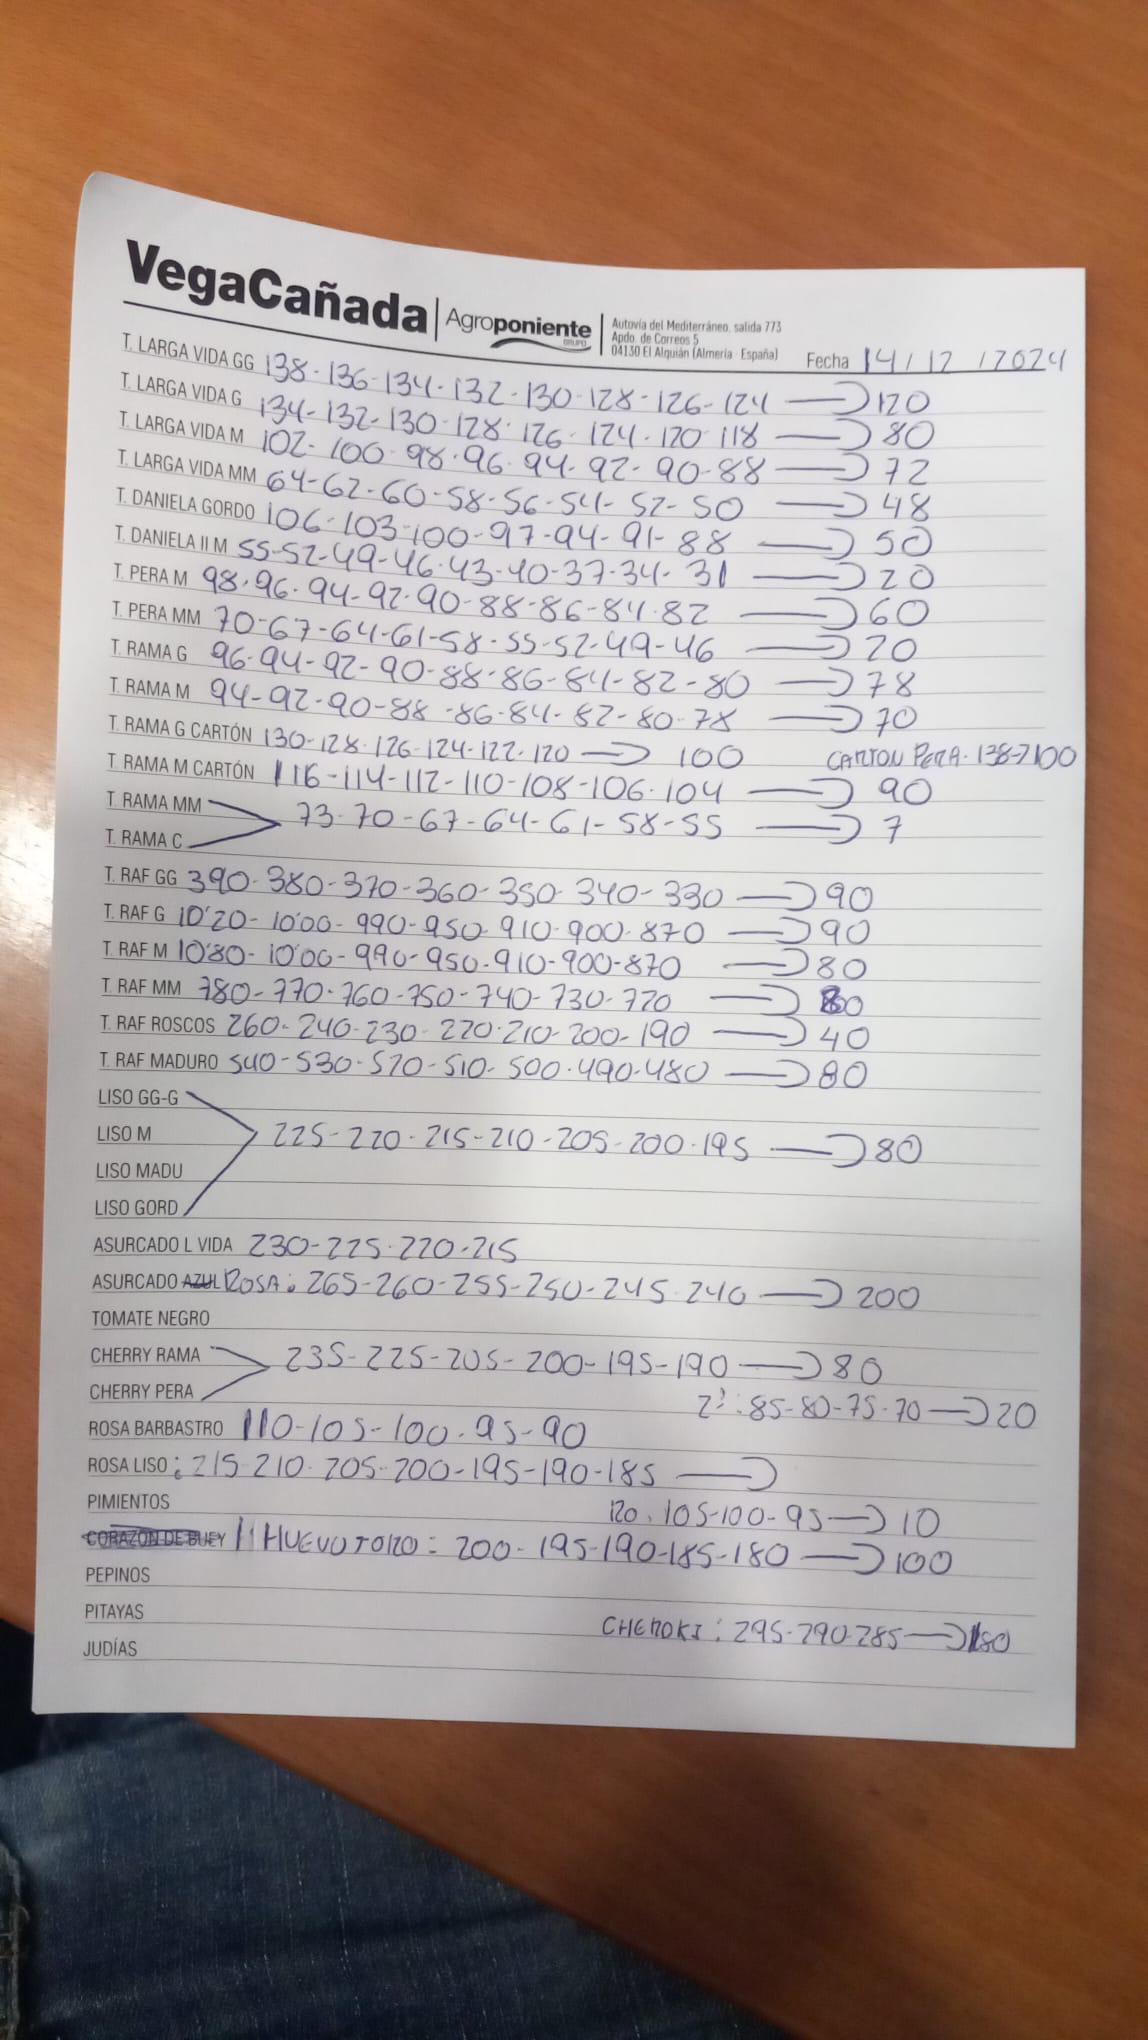 VegaCañada
Agroponiente
GRUPO
Autovía del Mediterráneo, salida 773
Apdo. de Correos 5
04130 El Alquián (Almería - España)
Fecha 14/12/2024
T. LARGA VIDA GG 138-136-134-132-130-128-126-124 → 120
T. LARGA VIDA G 134-132-130-128-126-124-120-118 → 80
T. LARGA VIDA M 102-100-98-96-94-92-90-88 → 72
T. LARGA VIDA MM 64-62-60-58-56-54-52-50 → 48
T. DANIELA GORDO 106-103-100-97-94-91-88 → 50
T. DANIELA II M 55-52-49-46-43-40-37-34-31 → 20
T. PERA M 98-96-94-92-90-88-86-84-82 → 60
T. PERA MM 70-67-64-61-58-55-52-49-46 → 20
T. RAMA G 96-94-92-90-88-86-84-82-80 → 78
T. RAMA M 94-92-90-88-86-84-82-80-78 → 70
T. RAMA G CARTÓN 130-128-126-124-122-120 → 100 CARTON PERA-138→100
T. RAMA M CARTÓN 116-114-112-110-108-106-104 → 90
T. RAMA MM
73-70-67-64-61-58-55 → 7
T. RAMA C
T. RAF GG 390-380-370-360-350-340-330 → 90
T. RAF G 10'20-10'00-990-950-910-900-870 → 90
T. RAF M 10'80-10'00-990-950-910-900-870 → 80
T. RAF MM 780-770-760-750-740-730-720 →
T. RAF ROSCOS 260-240-230-220-210-200-190 → 40
T. RAF MADURO 540-530-520-510-500-490-480 → 80
LISO GG-G
LISO M 225-220-215-210-205-200-195 → 80
LISO MADU
LISO GORD
ASURCADO L VIDA 230-225-220-215
ASURCADO AZUL ROSA: 265-260-255-250-245-240 → 200
TOMATE NEGRO
CHERRY RAMA 235-225-205-200-195-190 → 80
CHERRY PERA 2ª:85-80-75-70 → 20
ROSA BARBASTRO 110-105-100-95-90
ROSA LISO: 215-210-205-200-195-190-185 →
PIMIENTOS 120-105-100-95 → 10
CORAZÓN DE BUEY HUEVO TORO: 200-195-190-185-180 → 100
PEPINOS
PITAYAS CHEROKI: 295-290-285 → 180
JUDÍAS